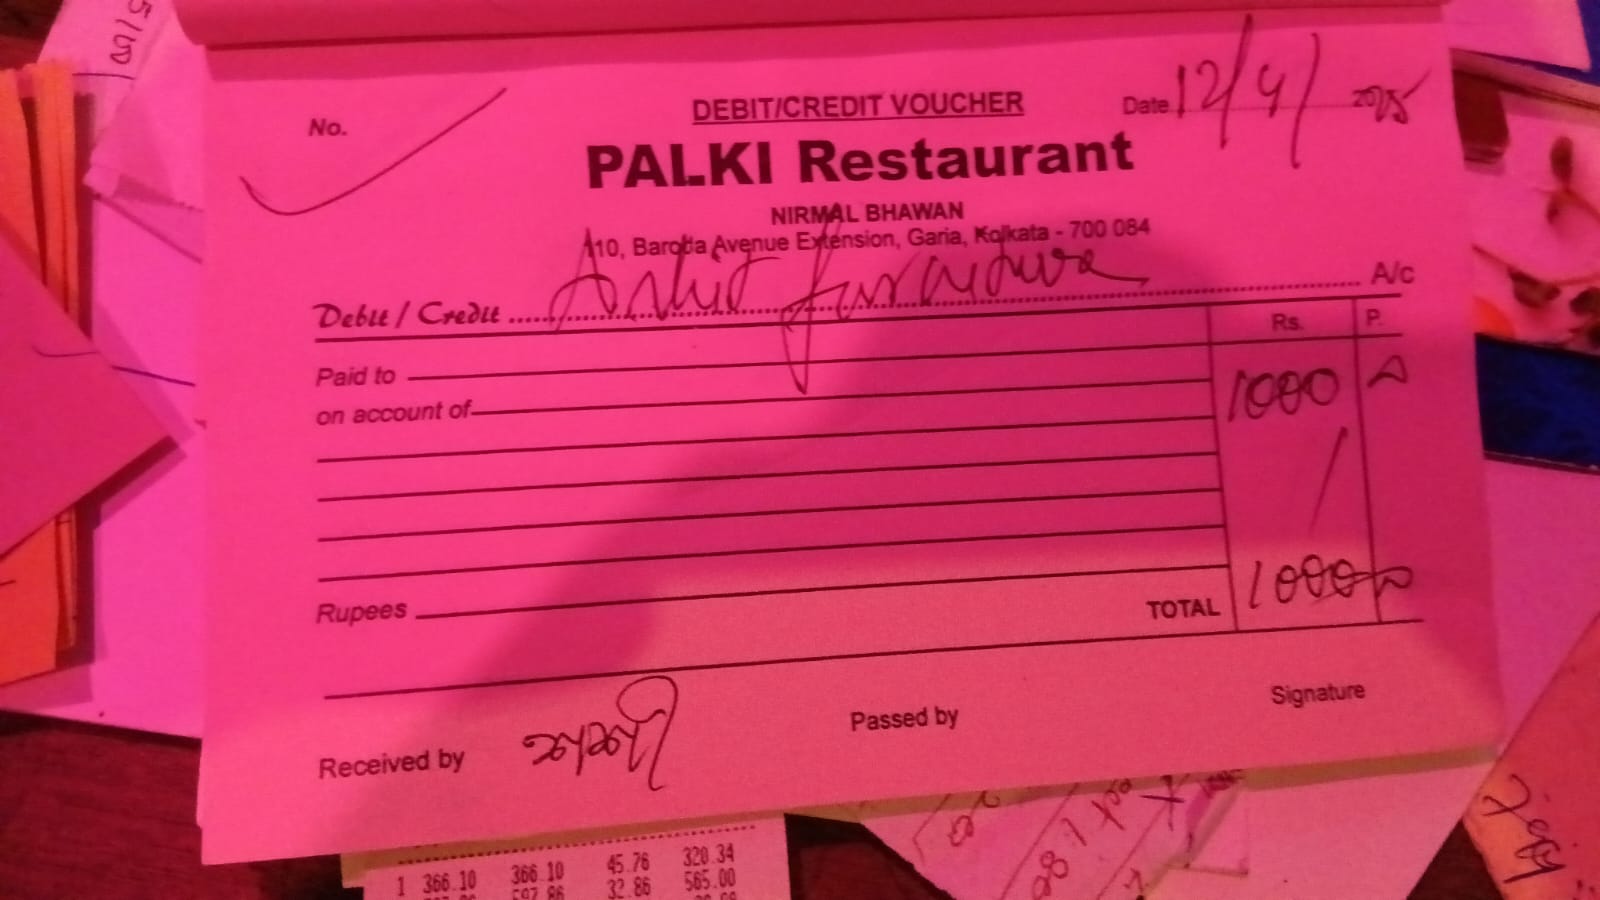 5/100
DEBIT/CREDIT VOUCHER
No.
Date 12/4/ 2025
PALKI Restaurant
NIRMAL BHAWAN
110, Baroda Avenue Extension, Garia, Kolkata - 700 084
Debit / Credit A/c
Rs. P.
Paid to
1000
on account of
Rupees
TOTAL 1000
Signature
Passed by
Received by
1 366.10 366.10 45.76 320.34
597.86 32.86 565.00